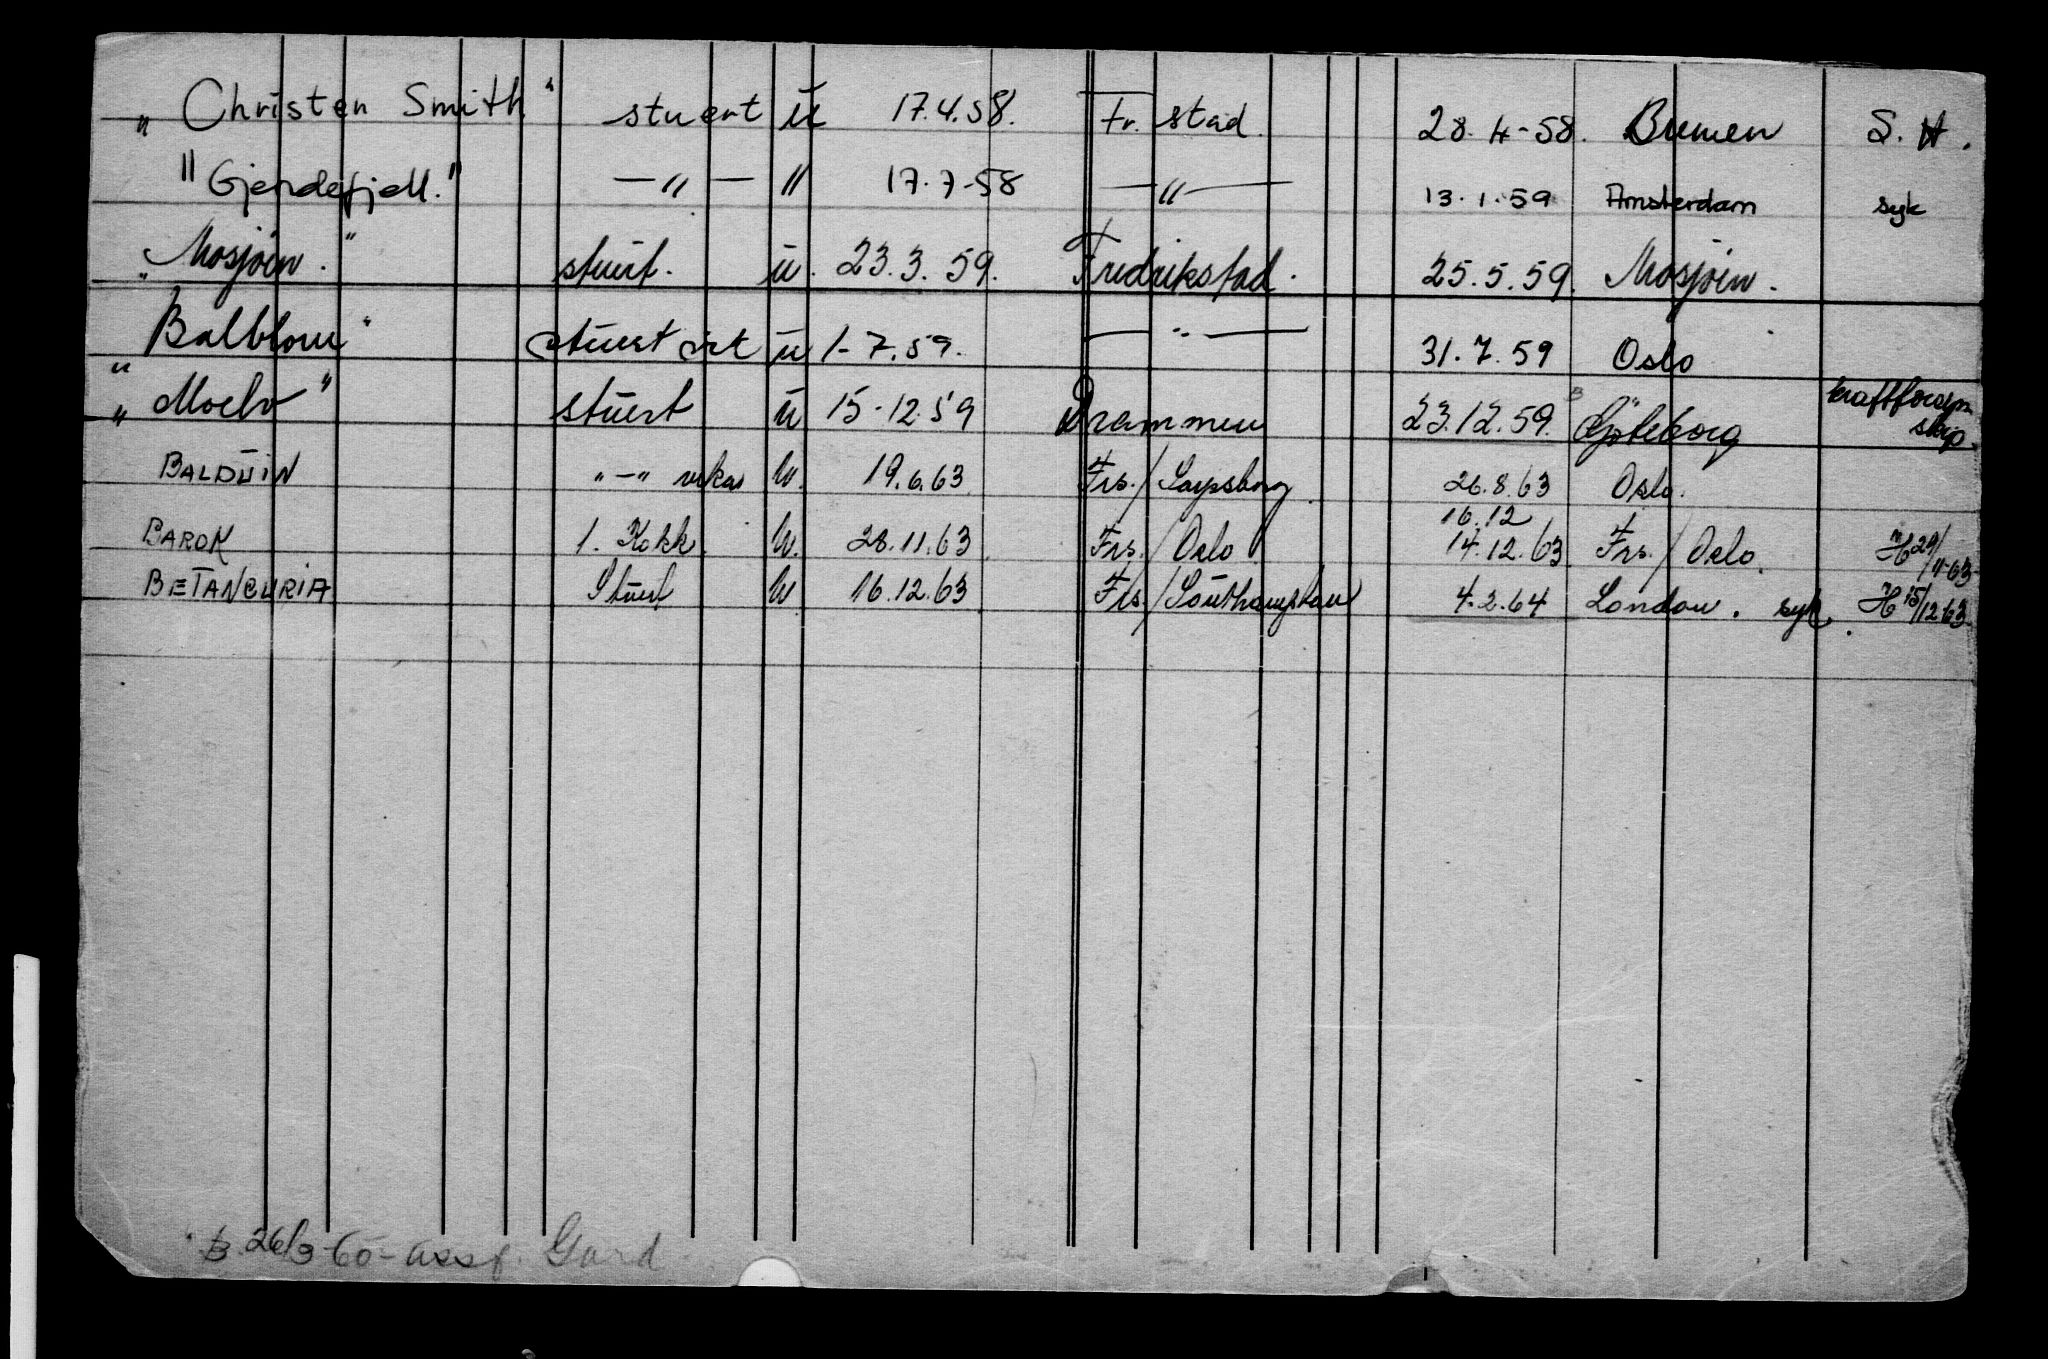 „ Christen Smith " stuert ū 17.4.58. Fr. stad. 28.4-58. Bremen S. H.
" Gjendefjell." — " — " 17.7-58 — " — 13.1.59 Amsterdam syk
„ Mosjøen." stuert. ū. 23.3.59. Fredrikstad. 25.5.59. Mosjøen.
„ Balblom " stuert ū 1-7.59. — " — 31.7.59 Oslo
„ Moelv " stuert ū 15-12.59 Drammen 23.12.59. Göteborg
skip.
BALDUIN " — " vikar U. 19.6.63 Frs. / Sarpsborg. 26.8.63 Oslo.
16.12
BAROK 1. Kokk. U. 28.11.63. Frs. / Oslo 14.12.63 Frs. / Oslo. H 29/11-63
BETANCURIA Stuert U. 16.12.63 Frs / Southampton 4.2.64 London. syk. H 15/12 63
B. 26/3-60- Gard